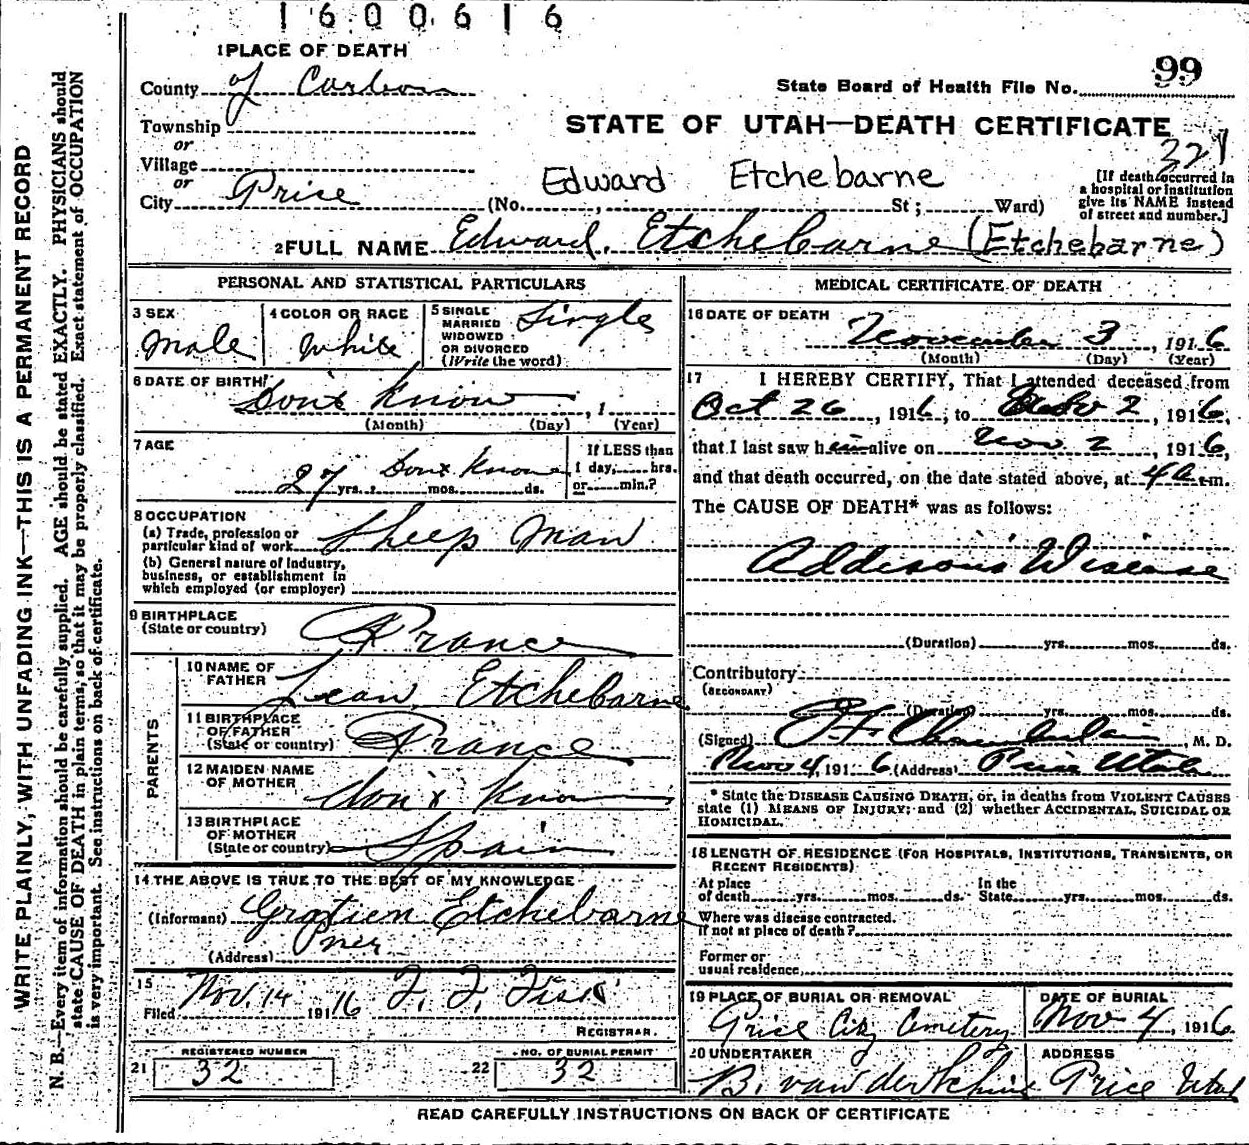 1600616
1 PLACE OF DEATH
99
County of Carbon
State Board of Health File No.
Township
STATE OF UTAH—DEATH CERTIFICATE
or
327
Village
or
Edward Etchebarne
[If death occurred in
a hospital or institution
give its NAME instead
of street and number.]
City Price (No. , St ; Ward)
2 FULL NAME Edward Etchebarne (Etchebarne)
PERSONAL AND STATISTICAL PARTICULARS
3 SEX
Male
4 COLOR OR RACE
White
5 SINGLE
MARRIED
WIDOWED
OR DIVORCED
(Write the word)
Single
6 DATE OF BIRTH
Don't Know , 1
(Month) (Day) (Year)
7 AGE
27 yrs. Don't Know mos. ds.
If LESS than
1 day, hrs.
or min.?
8 OCCUPATION
(a) Trade, profession or
particular kind of work
Sheep Man
(b) General nature of industry,
business, or establishment in
which employed (or employer)
9 BIRTHPLACE
(State or country)
France
PARENTS
10 NAME OF
FATHER
Jean Etchebarne
11 BIRTHPLACE
OF FATHER
(State or country)
France
12 MAIDEN NAME
OF MOTHER
Don't Know
13 BIRTHPLACE
OF MOTHER
(State or country)
Spain
14 THE ABOVE IS TRUE TO THE BEST OF MY KNOWLEDGE
(Informant) Gratien Etchebarne
(Address)
15
Filed Nov. 14 1916
REGISTRAR.
21 REGISTERED NUMBER
32
22 NO. OF BURIAL PERMIT
32
MEDICAL CERTIFICATE OF DEATH
16 DATE OF DEATH
November 3, 1916
(Month) (Day) (Year)
17 I HEREBY CERTIFY, That I attended deceased from
Oct 26, 1916, to Nov 2, 1916,
that I last saw him alive on Nov. 2, 1916,
and that death occurred, on the date stated above, at 4 a m.
The CAUSE OF DEATH* was as follows:
Addison's Disease
(Duration) yrs. mos. ds.
Contributory
(SECONDARY)
(Duration) yrs. mos. ds.
(Signed) Chamberlain, M. D.
Nov 4, 1916 (Address) Price Utah
* State the DISEASE CAUSING DEATH, or, in deaths from VIOLENT CAUSES
state (1) MEANS OF INJURY; and (2) whether ACCIDENTAL, SUICIDAL OR
HOMICIDAL.
18 LENGTH OF RESIDENCE (FOR HOSPITALS, INSTITUTIONS, TRANSIENTS, OR
RECENT RESIDENTS)
At place
of death yrs. mos. ds.
In the
State yrs. mos. ds.
Where was disease contracted.
if not at place of death?
Former or
usual residence,
19 PLACE OF BURIAL OR REMOVAL
Price City Cemetery
DATE OF BURIAL
Nov 4, 1916
20 UNDERTAKER
ADDRESS
Price Utah
READ CAREFULLY INSTRUCTIONS ON BACK OF CERTIFICATE
WRITE PLAINLY, WITH UNFADING INK—THIS IS A PERMANENT RECORD
N. B.—Every item of information should be carefully supplied. AGE should be stated EXACTLY. PHYSICIANS should
state CAUSE OF DEATH in plain terms, so that it may be properly classified. Exact statement of OCCUPATION
is very important. See instructions on back of certificate.